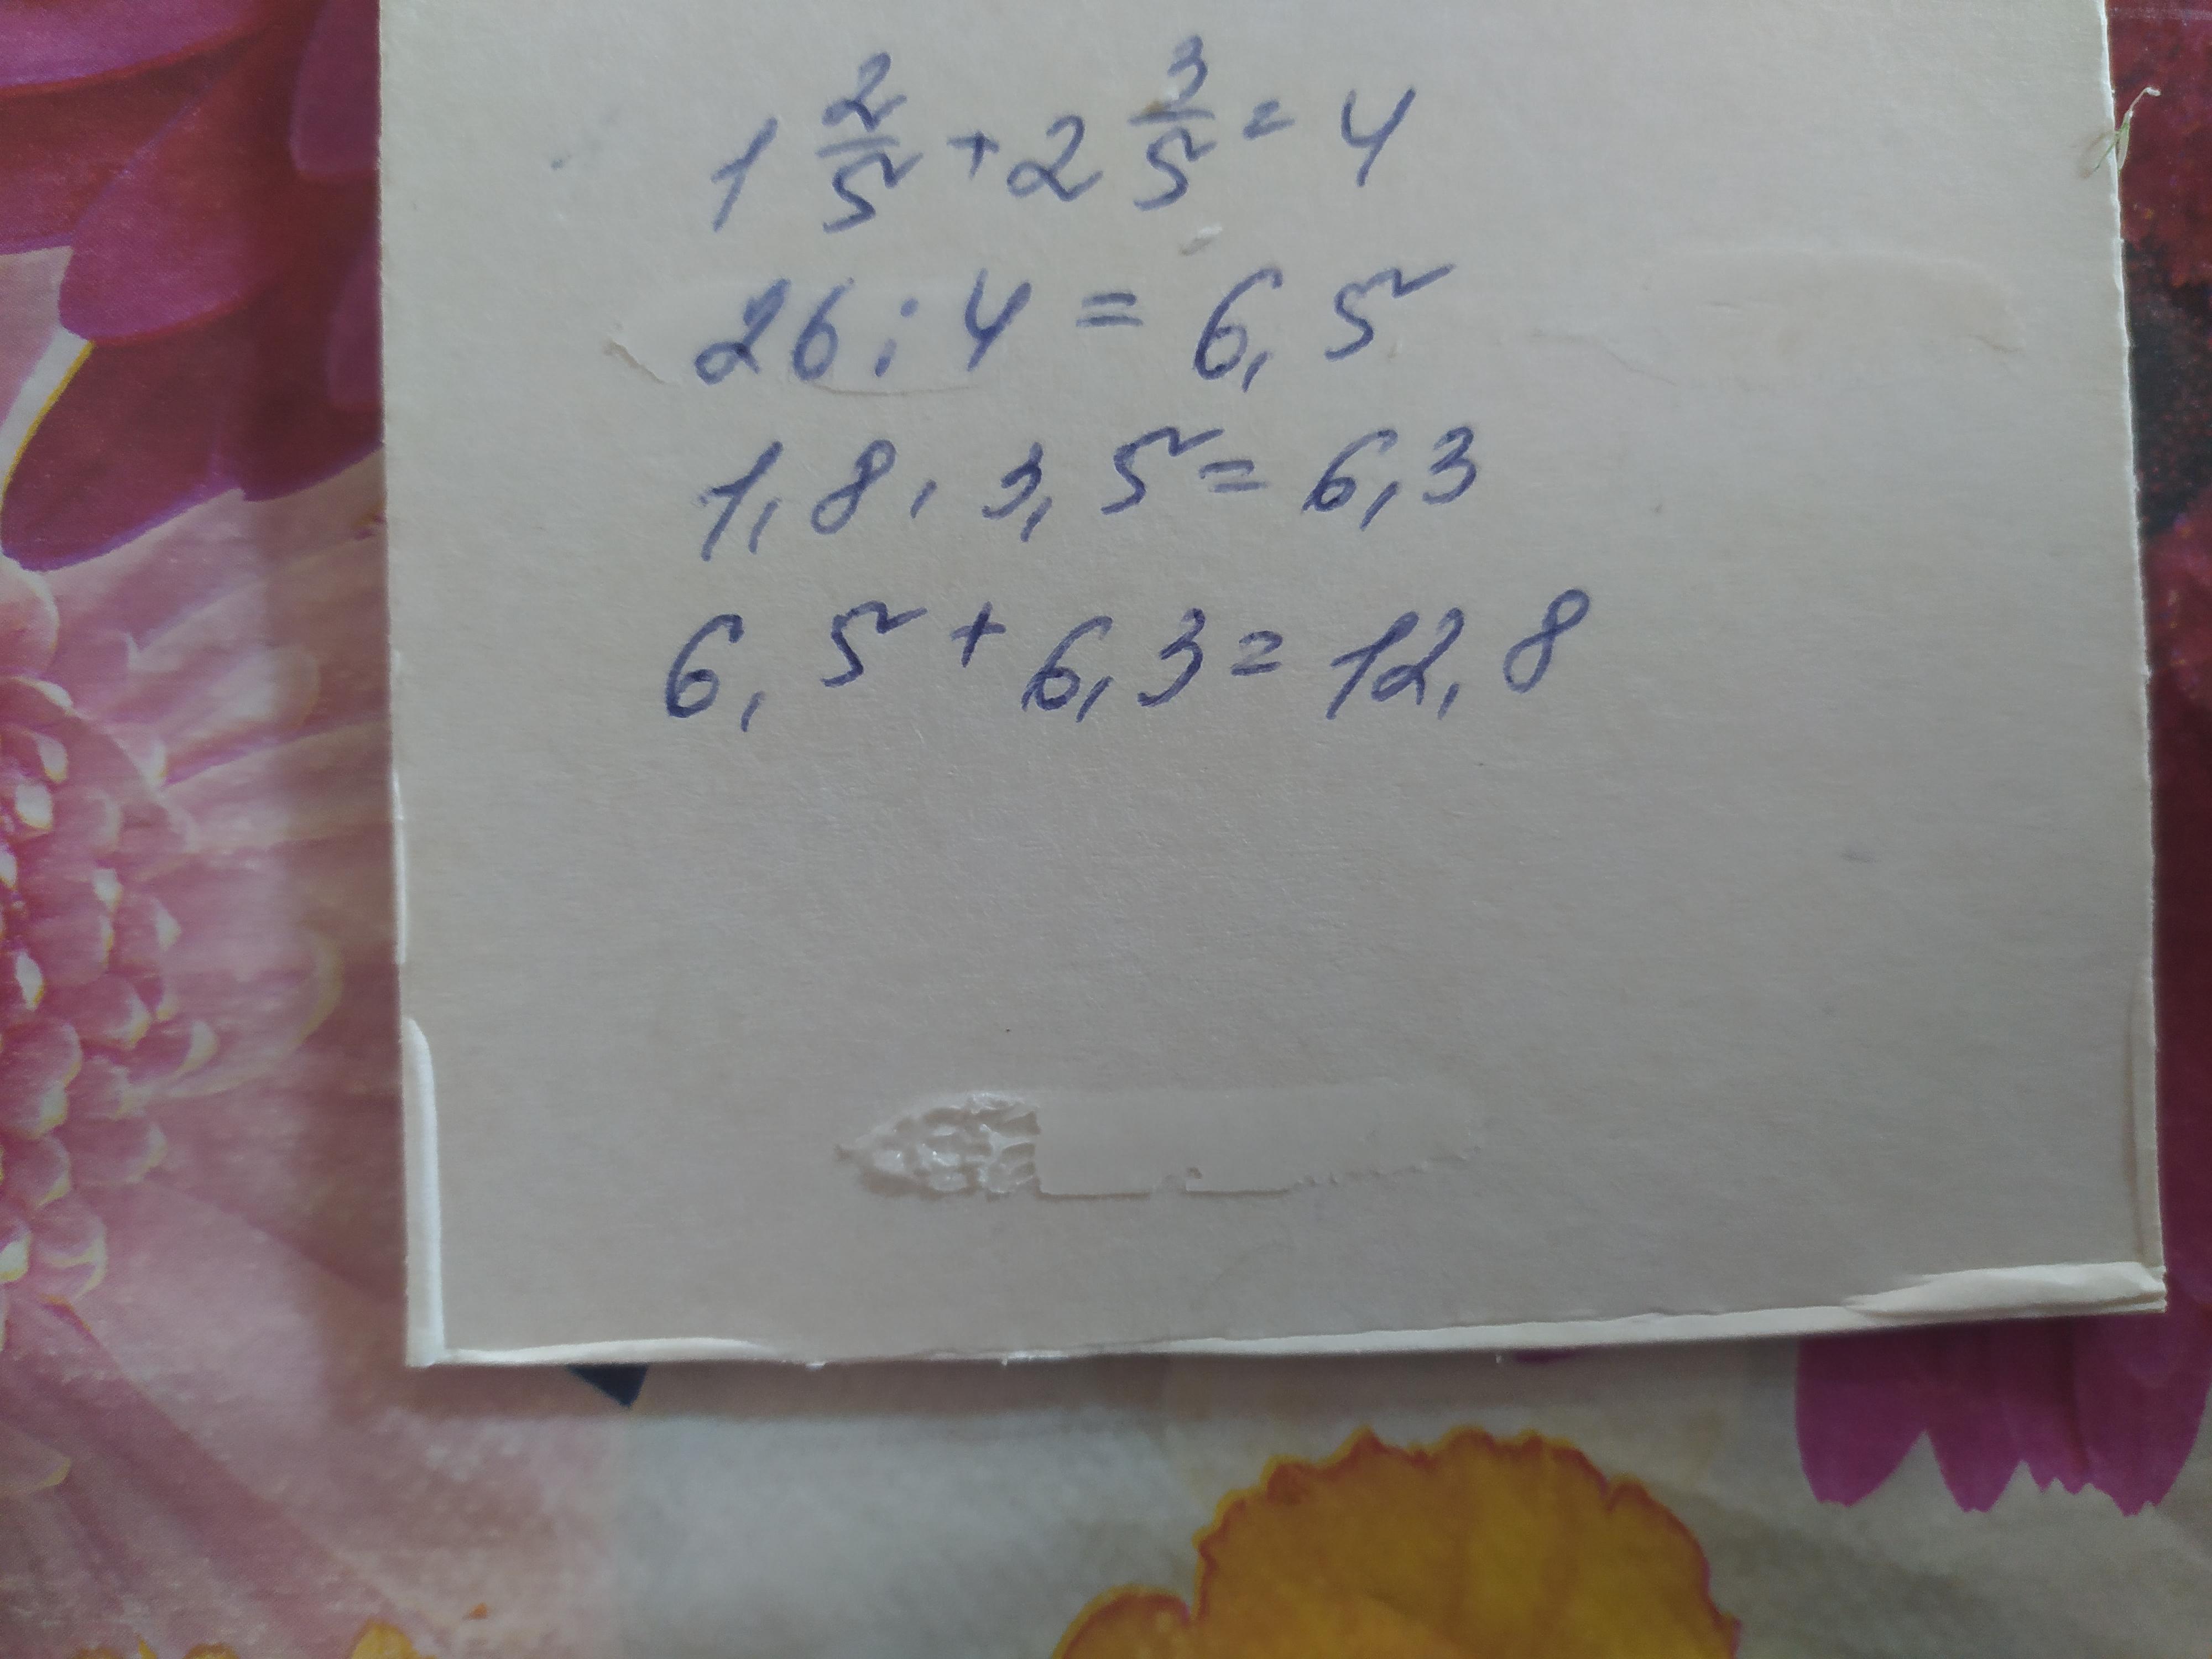 1 2/5 + 2 3/5 = 4
26 : 4 = 6,5
1,8 · 3,5 = 6,3
6,5 + 6,3 = 12,8